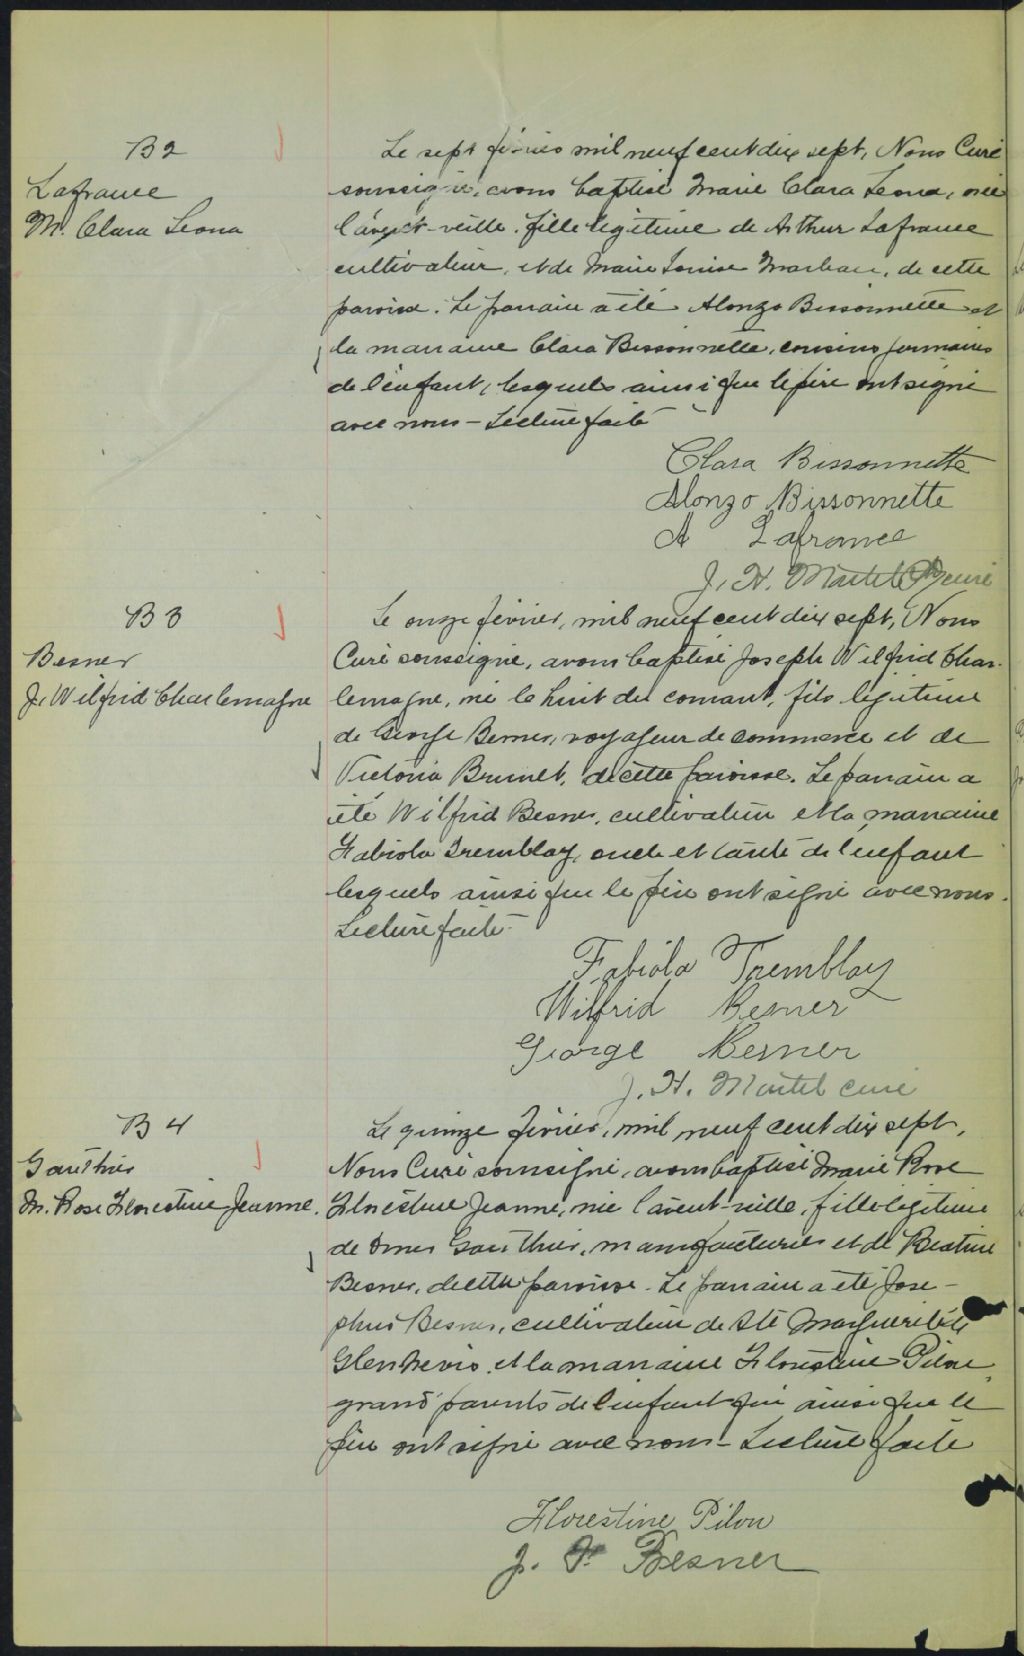 B2
Lafrance
M. Clara Leona
Le sept février mil neuf cent dix sept, Nous Curé
soussigné, avons baptisé Marie Clara Leona, née
l'avant-veille, fille légitime de Arthur Lafrance
cultivateur, et de Marie Louise, de cette
paroisse. Le parrain a été Alonzo Bissonnette et
la marraine Clara Bissonnette, cousins germains
de l'enfant, lesquels ainsi que le père ont signé
avec nous - Lecture faite
Clara Bissonnette
Alonzo Bissonnette
A Lafrance
J. H. Martel curé
B3
Besner
J. Wilfrid Charlemagne
Le onze février, mil neuf cent dix sept, Nous
Curé soussigné, avons baptisé Joseph Wilfrid Char-
lemagne, né le huit du courant, fils légitime
de George Besner, voyageur de commerce et de
Victoria Brunet, de cette paroisse. Le parrain a
été Wilfrid Besner, cultivateur et la marraine
Fabiola Tremblay, oncle et tante de l'enfant
lesquels ainsi que le père ont signé avec nous.
Lecture faite -
Fabiola Tremblay
Wilfrid Besner
George Besner
J. H. Martel curé
B4
Gauthier
M. Rose Florestine Jeanne.
Le quinze février, mil neuf cent dix sept,
Nous Curé soussigné, avons baptisé Marie Rose
Florestine Jeanne, née l'avant-veille, fille légitime
de Omer Gauthier, manufacturier et de Beatrice
Besner, de cette paroisse. Le parrain a été Jose-
phus Besner, cultivateur de Ste Marguerite de
Glen Nevis, et la marraine Florestine Pilon,
grand parents de l'enfant qui ainsi que le
père ont signé avec nous - Lecture faite
Florestine Pilon
J. F. Besner